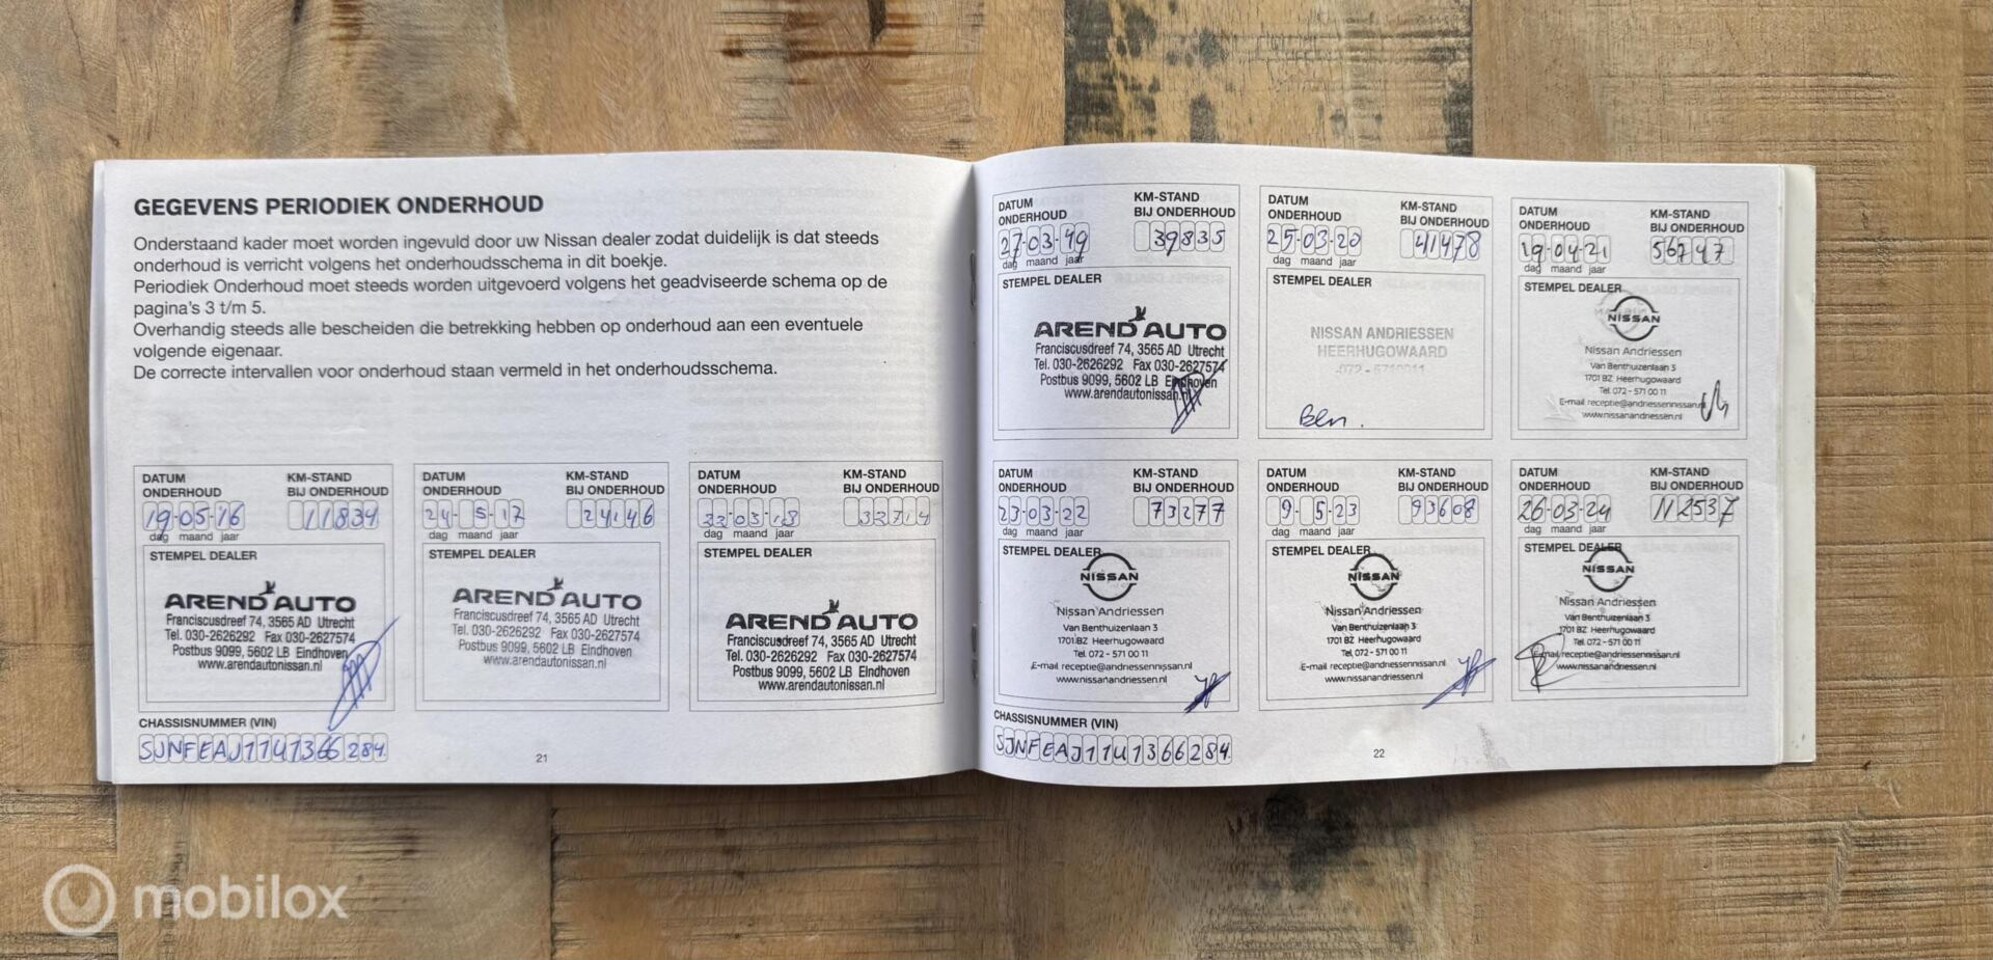 GEGEVENS PERIODIEK ONDERHOUD
Onderstaand kader moet worden ingevuld door uw Nissan dealer zodat duidelijk is dat steeds
onderhoud is verricht volgens het onderhoudsschema in dit boekje.
Periodiek Onderhoud moet steeds worden uitgevoerd volgens het geadviseerde schema op de
pagina's 3 t/m 5.
Overhandig steeds alle bescheiden die betrekking hebben op onderhoud aan een eventuele
volgende eigenaar.
De correcte intervallen voor onderhoud staan vermeld in het onderhoudsschema.
DATUM
ONDERHOUD
KM-STAND
BIJ ONDERHOUD
19-05-16
11834
dag maand jaar
STEMPEL DEALER
AREND AUTO
Franciscusdreef 74, 3565 AD Utrecht
Tel. 030-2626292 Fax 030-2627574
Postbus 9099, 5602 LB Eindhoven
www.arendautonissan.nl
DATUM
ONDERHOUD
KM-STAND
BIJ ONDERHOUD
24-5-17
24146
dag maand jaar
STEMPEL DEALER
AREND AUTO
Franciscusdreef 74, 3565 AD Utrecht
Tel. 030-2626292 Fax 030-2627574
Postbus 9099, 5602 LB Eindhoven
www.arendautonissan.nl
DATUM
ONDERHOUD
KM-STAND
BIJ ONDERHOUD
dag maand jaar
STEMPEL DEALER
AREND AUTO
Franciscusdreef 74, 3565 AD Utrecht
Tel. 030-2626292 Fax 030-2627574
Postbus 9099, 5602 LB Eindhoven
www.arendautonissan.nl
CHASSISNUMMER (VIN)
SJNFEAJ11U1366284
21
DATUM
ONDERHOUD
KM-STAND
BIJ ONDERHOUD
27-03-19
39835
dag maand jaar
STEMPEL DEALER
AREND AUTO
Franciscusdreef 74, 3565 AD Utrecht
Tel. 030-2626292 Fax 030-2627574
Postbus 9099, 5602 LB Eindhoven
www.arendautonissan.nl
DATUM
ONDERHOUD
KM-STAND
BIJ ONDERHOUD
25-03-20
41478
dag maand jaar
STEMPEL DEALER
NISSAN ANDRIESSEN
HEERHUGOWAARD
Ben.
DATUM
ONDERHOUD
KM-STAND
BIJ ONDERHOUD
19-04-21
56747
dag maand jaar
STEMPEL DEALER
NISSAN
Nissan Andriessen
Van Benthuizenlaan 3
1701 BZ Heerhugowaard
Tel. 072 - 571 00 11
E-mail receptie@andriessennissan.nl
www.nissanandriessen.nl
DATUM
ONDERHOUD
KM-STAND
BIJ ONDERHOUD
23-03-22
73277
dag maand jaar
STEMPEL DEALER
NISSAN
Nissan Andriessen
Van Benthuizenlaan 3
1701 BZ Heerhugowaard
Tel. 072 - 571 00 11
E-mail receptie@andriessennissan.nl
www.nissanandriessen.nl
DATUM
ONDERHOUD
KM-STAND
BIJ ONDERHOUD
9-5-23
93608
dag maand jaar
STEMPEL DEALER
NISSAN
Nissan Andriessen
Van Benthuizenlaan 3
1701 BZ Heerhugowaard
Tel. 072 - 571 00 11
E-mail receptie@andriessennissan.nl
www.nissanandriessen.nl
DATUM
ONDERHOUD
KM-STAND
BIJ ONDERHOUD
26-03-24
112537
dag maand jaar
STEMPEL DEALER
NISSAN
Nissan Andriessen
Van Benthuizenlaan 3
1701 BZ Heerhugowaard
Tel. 072 - 571 00 11
E-mail receptie@andriessennissan.nl
www.nissanandriessen.nl
CHASSISNUMMER (VIN)
SJNFEAJ11U1366284
22
mobilox